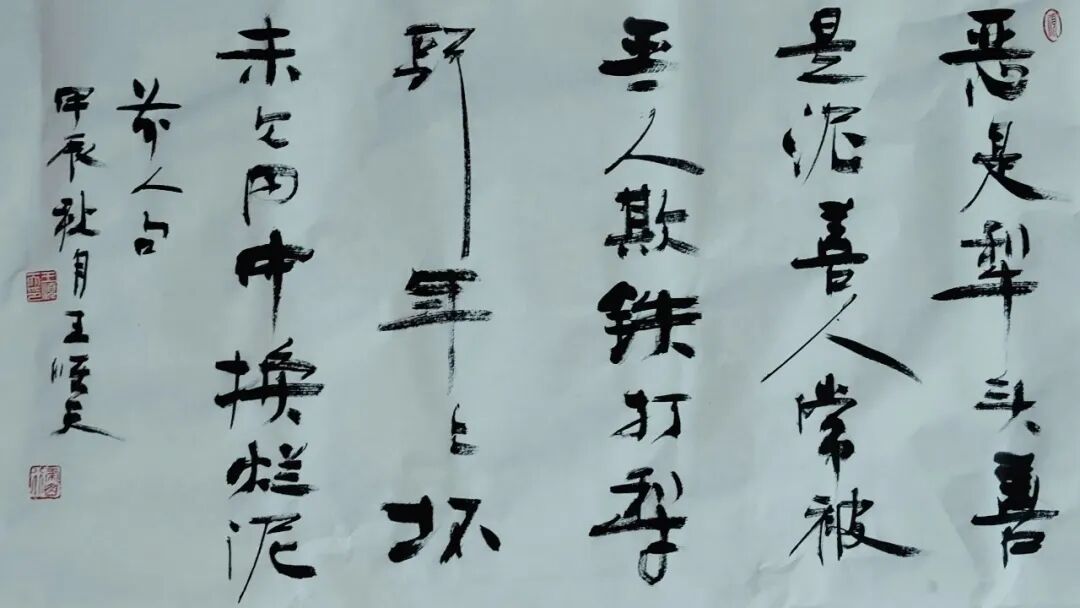 恶是犁头善
是泥善人常被
恶人欺铁打犁
头年々坏
未见田中换烂泥
前人句
甲辰秋月王